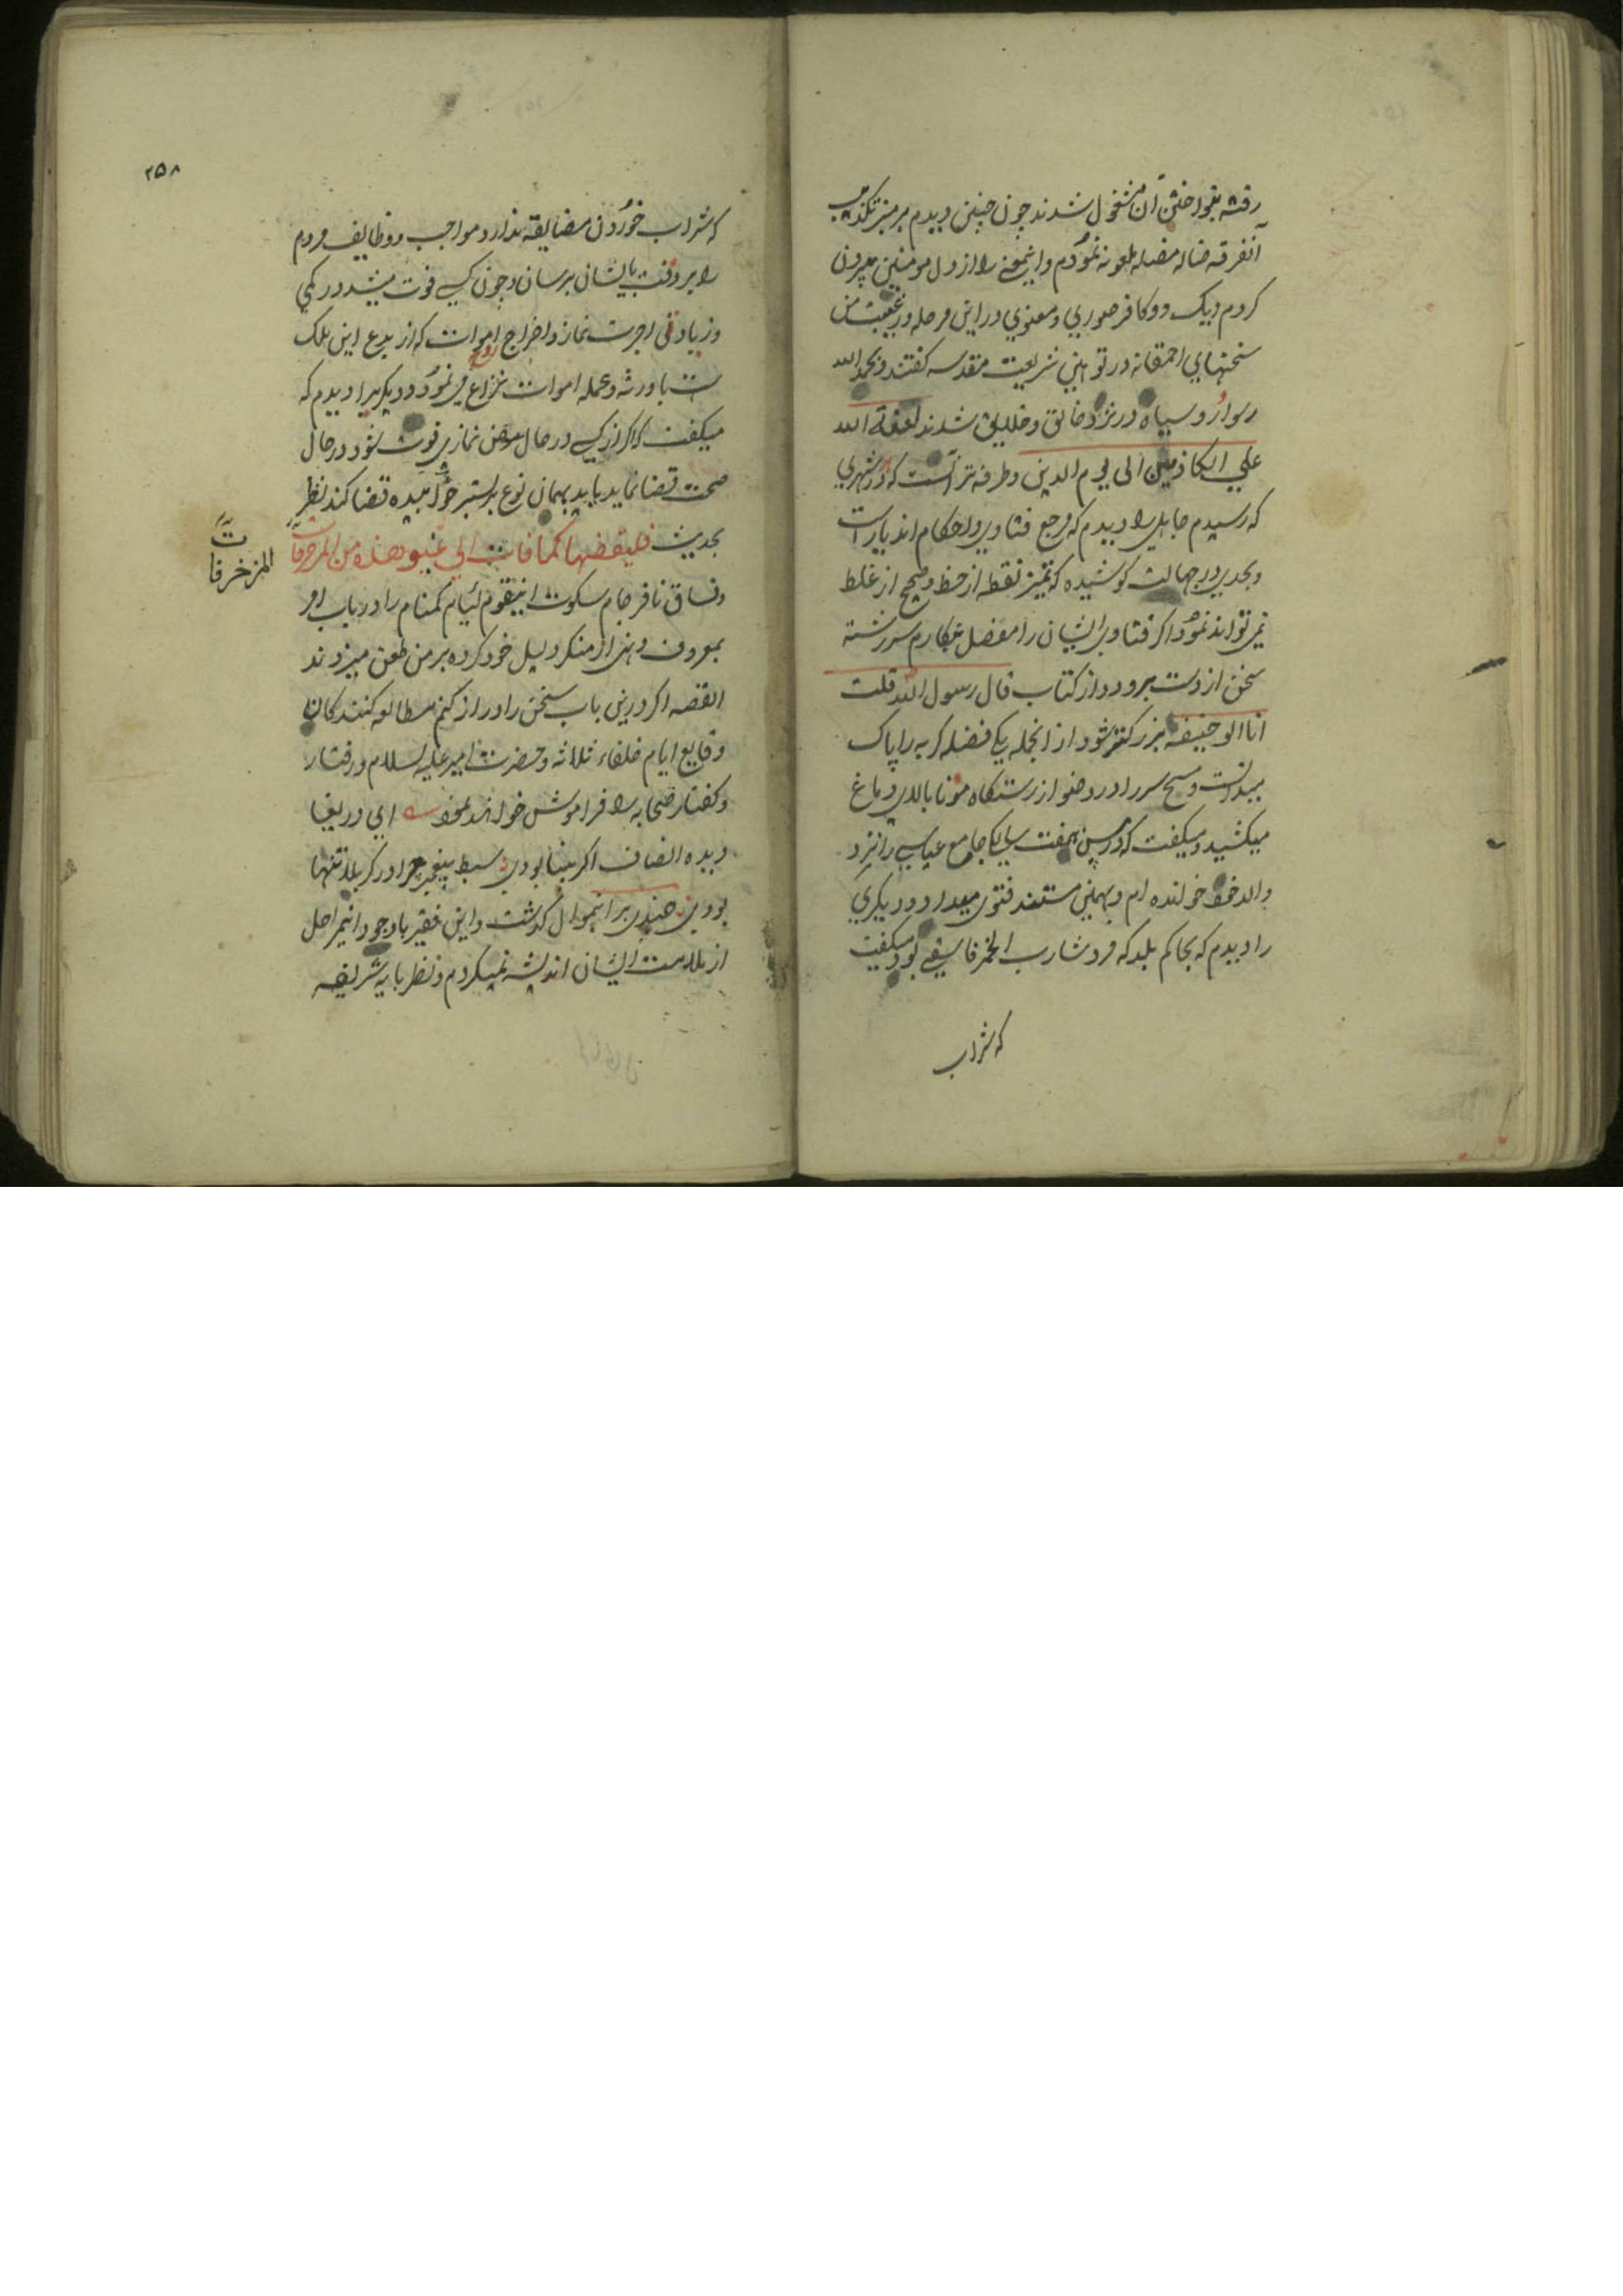 رفته بنواختن آن مشغول شدند چون چنین دیدم بر منبر تکذیب
آنفرقه ضاله مضله ملعونه نمودم و اینمعنی را از دل مومنین بیرون
کردم و یک دو کافر صوری و معنوی در این مرحله در غیبت من
سخنهای احمقانه در توهین شریعت مقدسه گفتند و بحمد الله
رسوا و سیاه در نزد خالق و خلایق شدند لعنة الله
علی الکافرین الی یوم الدین و طرفه تر آنست که در شهری
که رسیدم جاهلی را دیدم که مرجع فتاوی و احکام اندیار است
و بحدی در جهالت کوشیده که تمیز نقطه از خط و صحیح از غلط
نمی تواند نمود اگر فتاوی ایشان را مفصل بنگارم سررشته
سخن از دست برود و از کتاب قال رسول الله قلت
انا ابو حنیفه بزرگتر شود از انجمله یکی فضله گربه را پاک
میدانست و مسح سر را در وضو از رستنگاه مو تا بالای دماغ
میکشید و میگفت که در سن هفت سالگی جامع عباسی را نزد
والد خود خوانده ام و بهمین مستند فتوی میداد و دیگری
را دیدم که بحاکم بلد که مرد شارب الخمر فاسقی بود میگفت
که شراب
۲۵۸
که شراب خوردن مضایقه ندارد مواجب و وظایف مردم
را بر وقت بایشان برسان و چون کسی فوت میشد در کمی
و زیادتی اجرت نماز و اخراج اموات که از بدع این ملک
ست با ورثه و عمله اموات نزاع می نمود و دیگریرا دیدم که
میگفت که اگر از کسی در حال مرض نمازی فوت شود و در حال
صحت قضا نماید باید بهمان نوع بر بستر خوابیده قضا کند نظر
بحدیث فلیقضها کما فات الی غیر هذه من المزخرفات
المزخرفات
و فساق نافرجام سکوت اینقوم لئیام گمنام را در باب امر
بمعروف و نهی از منکر دلیل خود کرده بر من طعن میزدند
القصه اگر درین باب سخن را دراز کنم مطالعه کنندگان
وقایع ایام خلفاء ثلاثه و حضرت امیر علیه السلام و رفتار
و گفتار صحابه را فراموش خواهند نمود ای دریغا
دیده انصاف اگر بینا بودی سبط پیغمبر چرا در کربلا تنها
بودی چندی بر اینموال گذشت و این فقیر با وجود اینمراحل
از ملامت ایشان اندیشه نمیکردم و نظر بایه شریفه